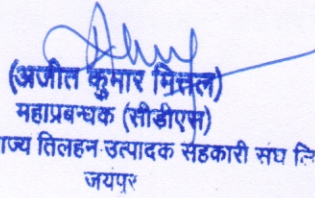 (अजीत कुमार मित्तल)
महाप्रबन्धक (सीडीएस)
ाज्य तिलहन उत्पादक सहकारी संघ लि
जयपुर